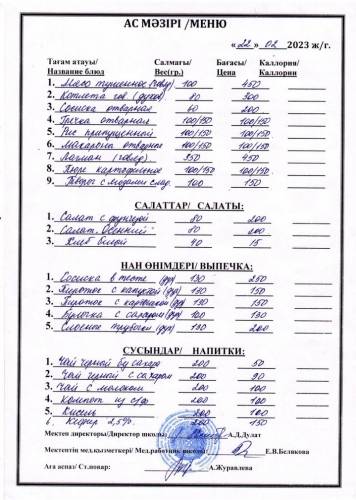 АС МӘЗІРІ /МЕНЮ
«22» 02 2023 ж/г.
Тағам атауы/ Салмағы/ Бағасы/ Каллория/
Название блюд Вес(гр.) Цена Каллории
1. Мясо тушенное (говяд) 100 450
2. Котлета гов. (духов) 80 300
3. Сосиска отварная 60 200
4. Гречка отварная 100/150 100/150
5. Рис припущенный 100/150 100/150
6. Макароны отварные 100/150 100/150
7. Лагман (говяд) 350 450
8. Пюре картофельное 100/150 100/150
9. Творог с 100 150
САЛАТТАР/ САЛАТЫ:
1. Салат с фунчозой 80 200
2. Салат Осенний 80 200
3. Хлеб белый 40 15
НАН ӨНІМДЕРІ/ ВЫПЕЧКА:
1. Сосиска в тесте (дух) 130 250
2. Пирожок с капустой (дух) 130 150
3. Пирожок с картошкой (дух) 130 150
4. Булочка с сахаром (дух) 100 130
5. Слоеные трубочки (дух) 130 200
СУСЫНДАР/ НАПИТКИ:
1. Чай черный без сахара 200 50
2. Чай черный с сахаром 200 90
3. Чай с молоком 200 100
4. Компот из с/ф 200 100
5. Кисель 200 100
6. Кефир 2,5% 200 150
Мектеп директоры/Директор школы: А.Д.Дулат
Мектептің мед.қызметкері/ Мед.работник школы: Е.В.Белякова
Аға аспаз/ Ст.повар: А.Журавлева